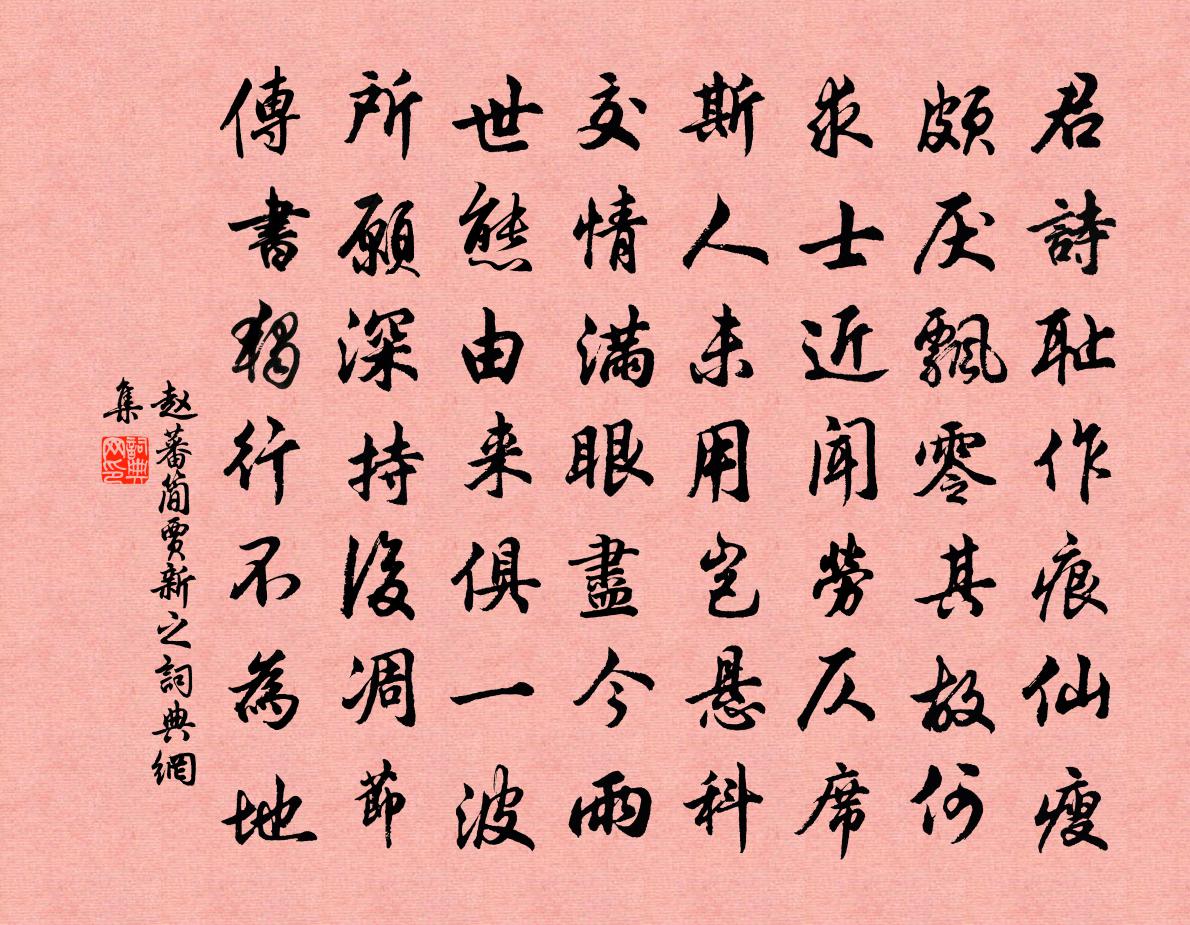 君詩耻作痕仙瘦
頗厌飄零其故何
求士近闻勞仄席
斯人未用岂悬科
交情满眼盡今雨
世態由来俱一波
所願深持後凋節
傳書獨行不為地
赵蕃简贾新之詞典網
集
詞典
网印